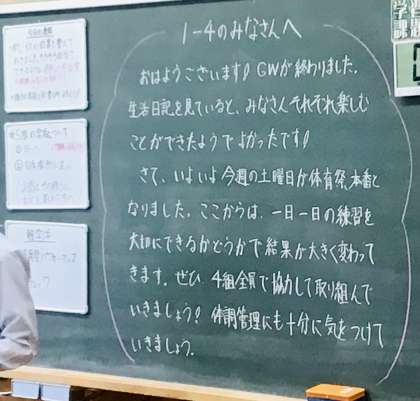 1-4のみなさんへ
おはようございます! GWが終わりました。
生活日記を見ていると、みなさんそれぞれ楽しむ
ことができたようでよかったです!
さて、いよいよ今週の土曜日が体育祭本番と
なりました。ここからは、一日一日の練習を
大切にできるかどうかで結果が大きく変わって
きます。ぜひ 4組全員で協力して取り組んで
いきましょう! 体調管理にも十分に気をつけて
いきましょう。
学習
課題